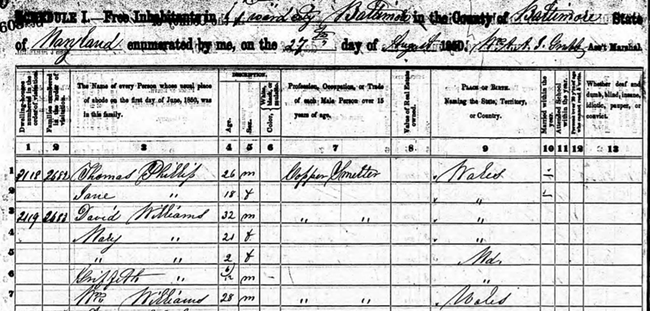 SCHEDULE I.—Free Inhabitants in 1 Ward City Baltimore in the County of Baltimore State
of Maryland enumerated by me, on the 27th day of August 1850. Ass't Marshal.
Dwelling-houses numbered in the order of visitation.
Families numbered in the order of visitation.
The Name of every Person whose usual place of abode on the first day of June, 1850, was in this family.
DESCRIPTION.
Age.
Sex.
Color,
Profession, Occupation, or Trade of each Male Person over 15 years of age.
Value of Real Estate owned.
PLACE OF BIRTH.
Naming the State, Territory, or Country.
Married within the year.
Attended School within the year.
Whether deaf and dumb, blind, insane, idiotic, pauper, or convict.
1 2 3 4 5 6 7 8 9 10 11 12 13
1 2118 2682 Thomas Phillip 26 m Copper Smelter Wales
2 Jane " 18 f "
3 2119 2683 David Williams 32 m " " "
4 Mary " 21 f "
5 " " 2 f Md
6 Griffith " m "
7 Wm Williams 28 m " " Wales